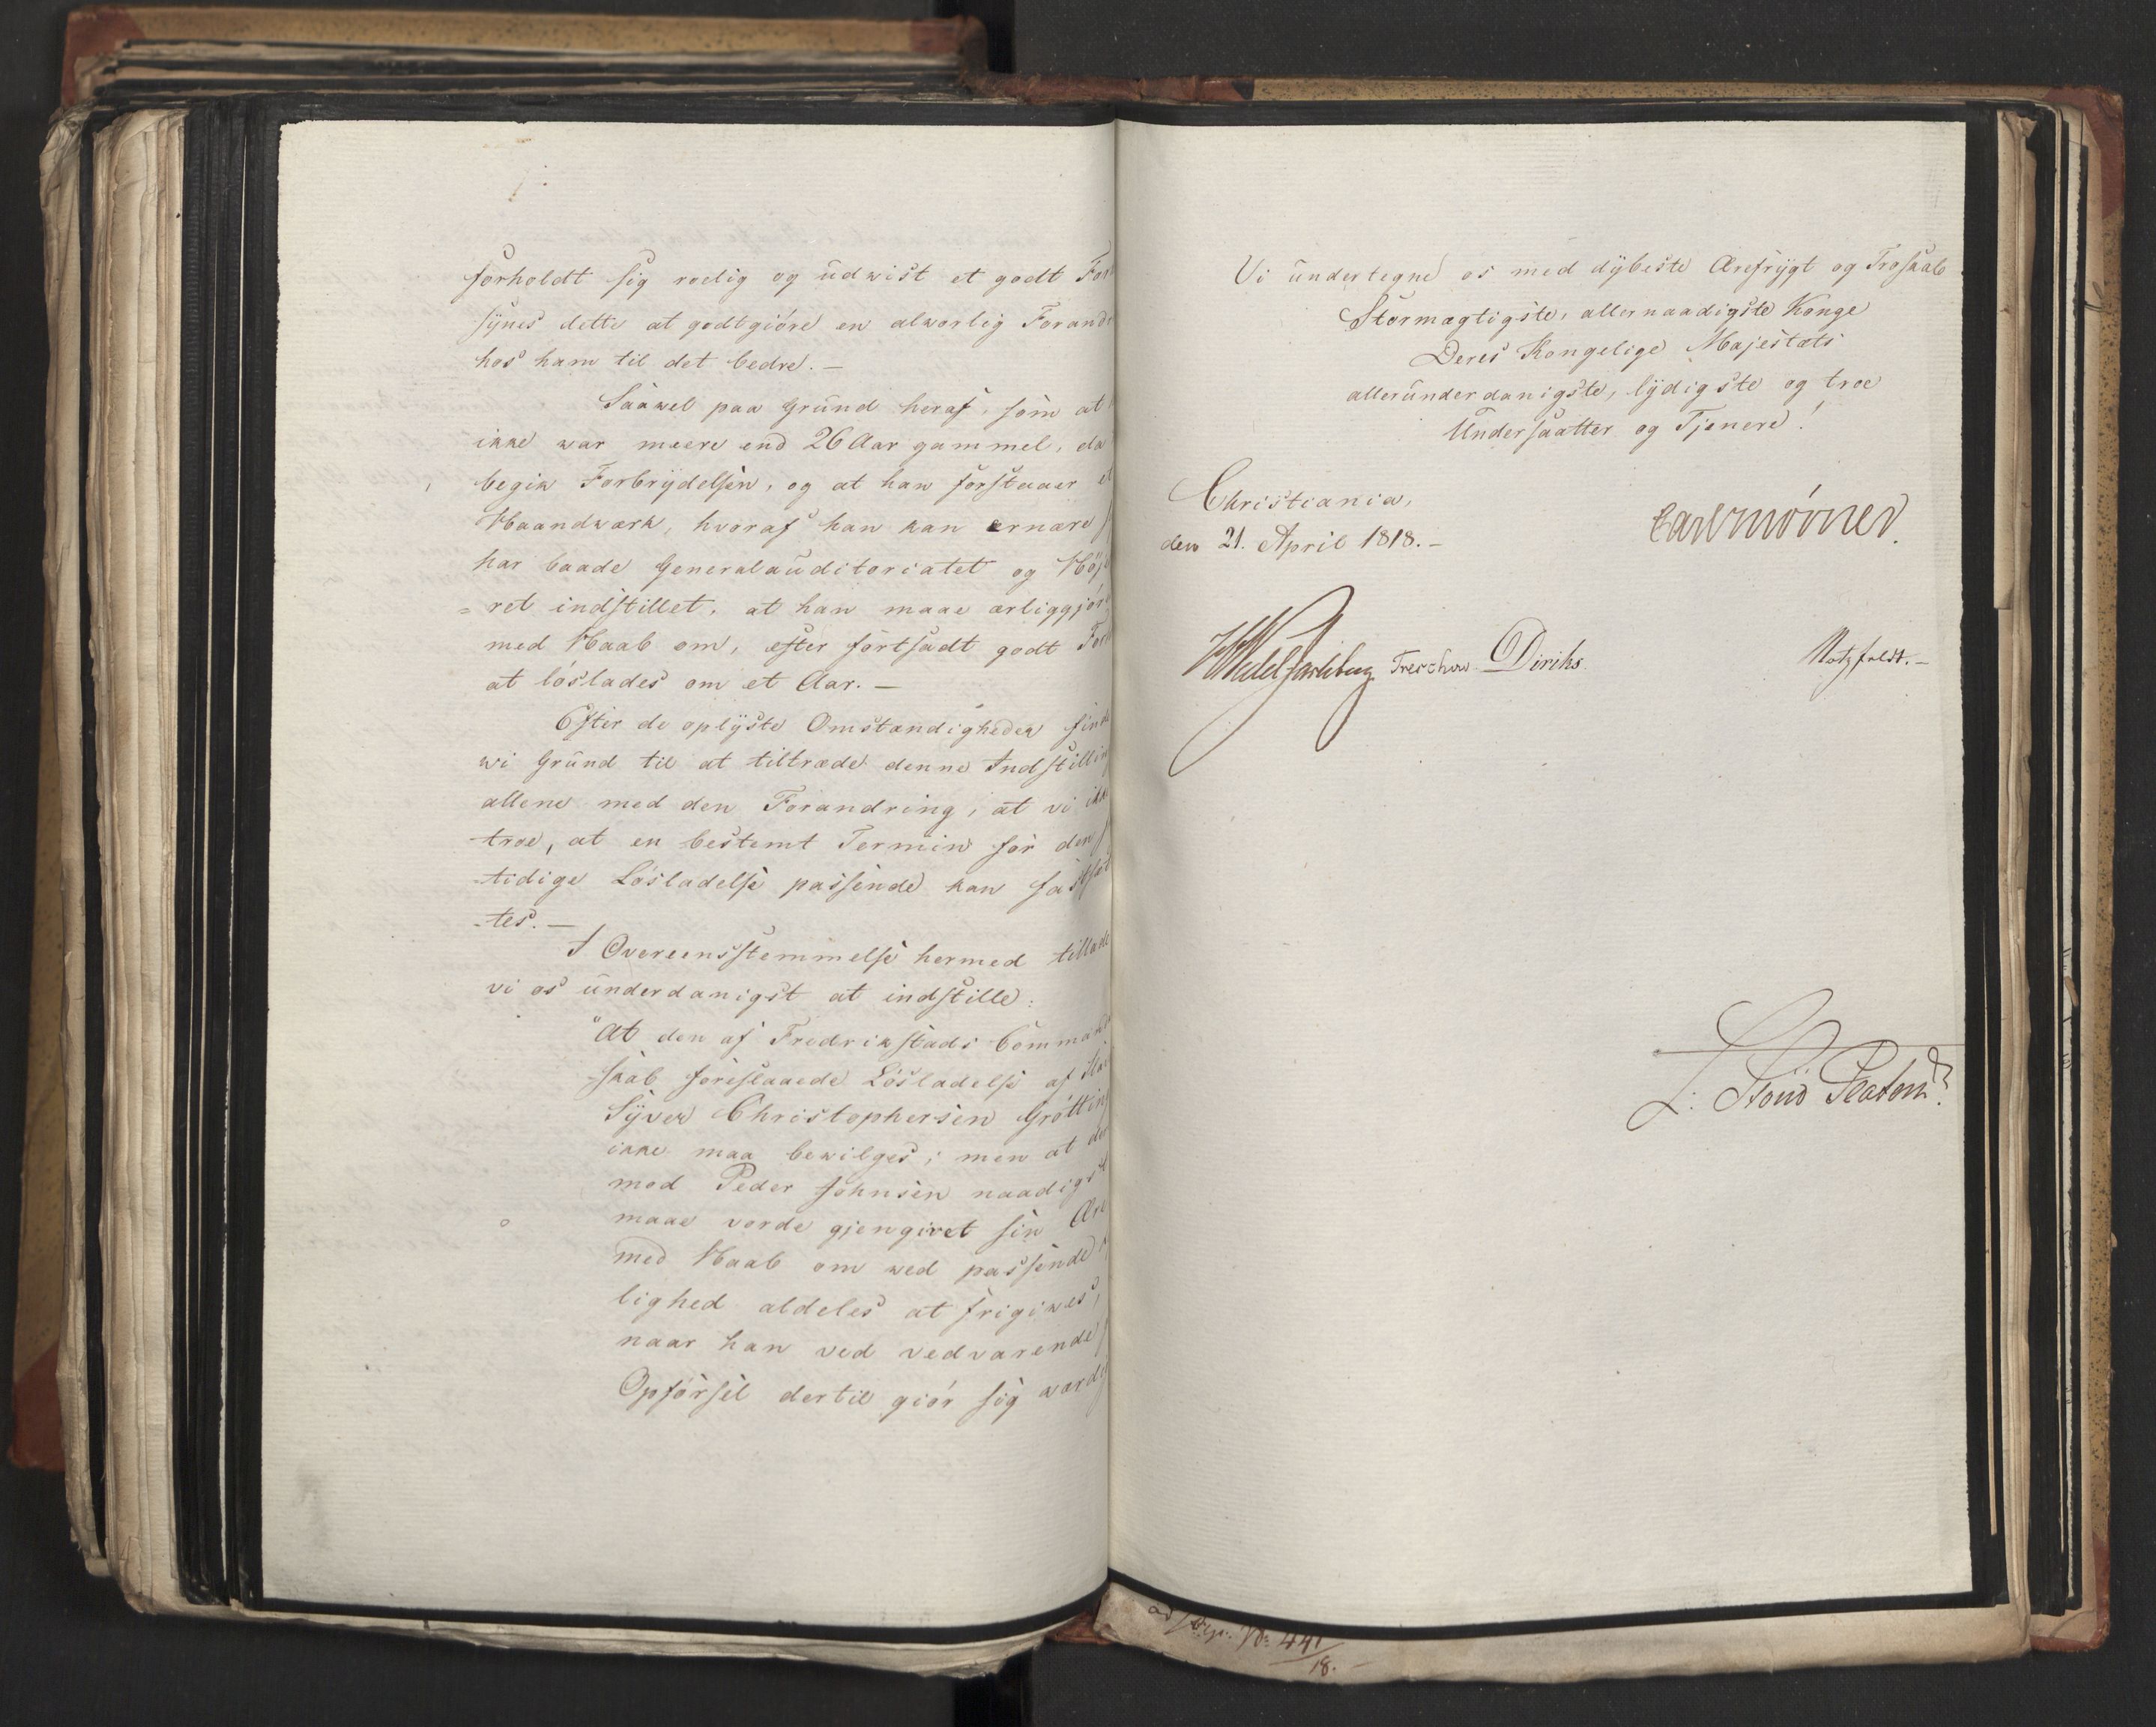 forholdt sig roelig og üdwist et godt For
synes dette at godtgiöre en alworlig Forand
hos ham til det bedre. —
Saawel paa Gründ heraf, som at
ikke war meere end 26 Aar gammel, da
begik Forbrydelsen, og at han forstaaer et
Haandwærk, hvoraf han kan ernære
har baade Generalaüditoriatet og Höj
= ret indstillet, at han maae ærliggjör
med Haab om, efter fortsadt godt For
at löslades om et Aar. —
Efter de oplyste Omstændigheder find
wi Gründ til at tiltræde denne Indstilling
allene med den Forandring, at vi ikke
troe, at en bestemt Termin for den
-tidige Lösladelse passende kan fastsæt
-tes. —
I Overeensstemmelse hermed tillade
vi os ünderdanigst at indstille:
"At den af Fredrikstads Comman
-skab foreslaaede Lösladelse af Sla
Syver Christophersen Gröttin
ikke maa bewilges; men at der
mod Peder Johnsen naadigst
maae vorde gjengivet sin Ære
med Haab om ved passende
lighed aldeles at frigiwes,
naar han ved vedvarende
Opförsel dertil giör sig wærdig
Vi ündertegne os med dybeste Ærefrygt og Troskab
Stormægtigste, allernaadigste Konge
Deres Kongelige Majestæts
alleründerdanigste, lydigste og troe
Undersaatter og Tjenere!
Christiania,
den 21. April 1818. —
Carl Mörner.
HWedel Jarlsberg Treschow Diriks Motzfeldt. —
L: Stoud Platou
No 441
18. —